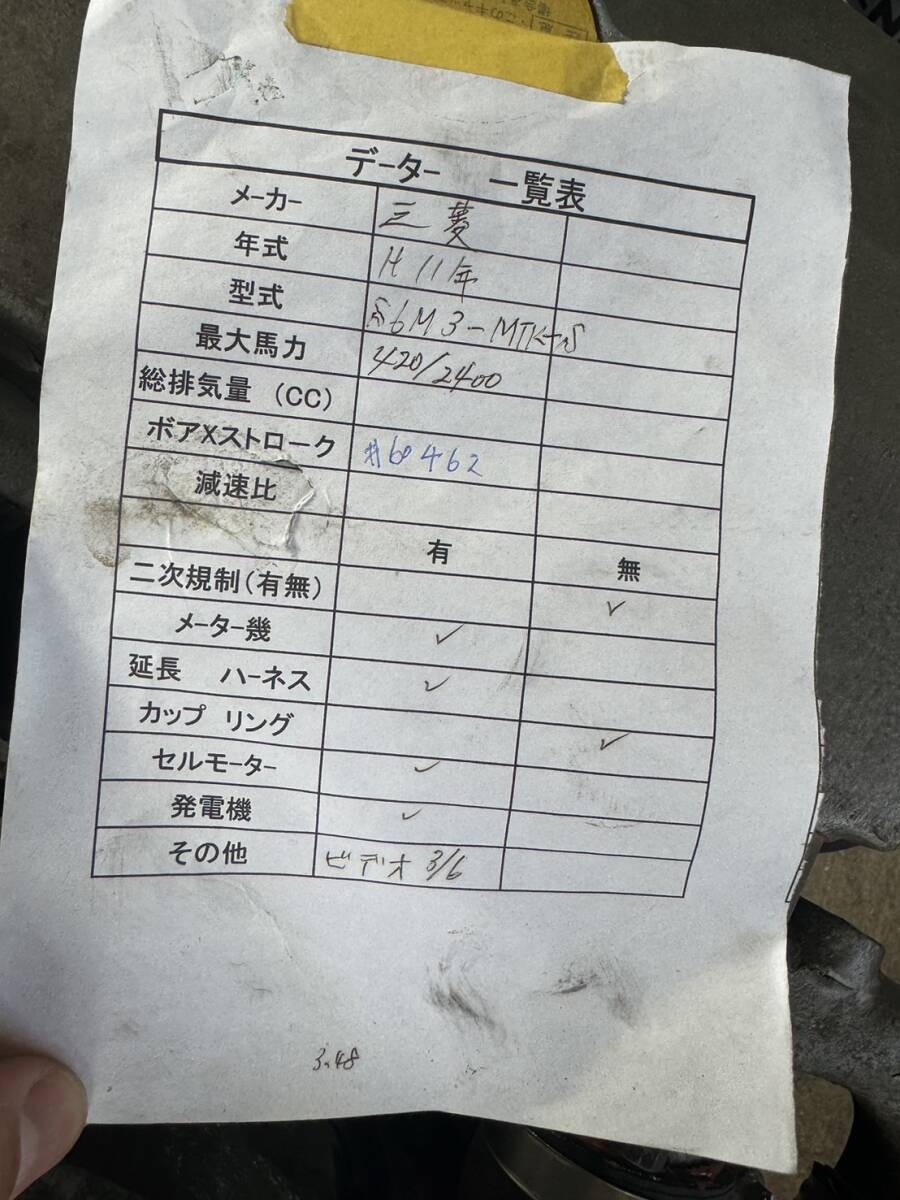 データー 一覧表
メーカー 三菱
年式 H11年
型式 S6M3-MTK-S
最大馬力 420/2400
総排気量 (CC)
ボアXストローク #60462
減速比
有 無
二次規制(有無) ✓
メーター幾 ✓
延長 ハーネス ✓
カップ リング ✓
セルモーター ✓
発電機 ✓
その他 ビデオ 3/6
3.48